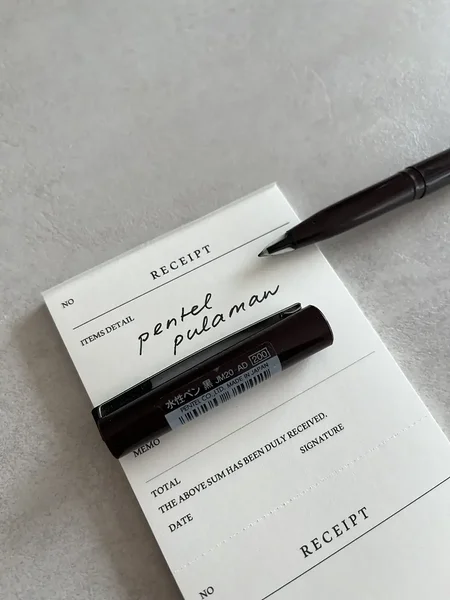 RECEIPT
NO
ITEMS DETAIL
pentel
pulaman
水性ペン 黒 JM20-AD 200
PENTEL CO., LTD. MADE IN JAPAN
MEMO
TOTAL
THE ABOVE SUM HAS BEEN DULY RECEIVED.
DATE
SIGNATURE
RECEIPT
NO